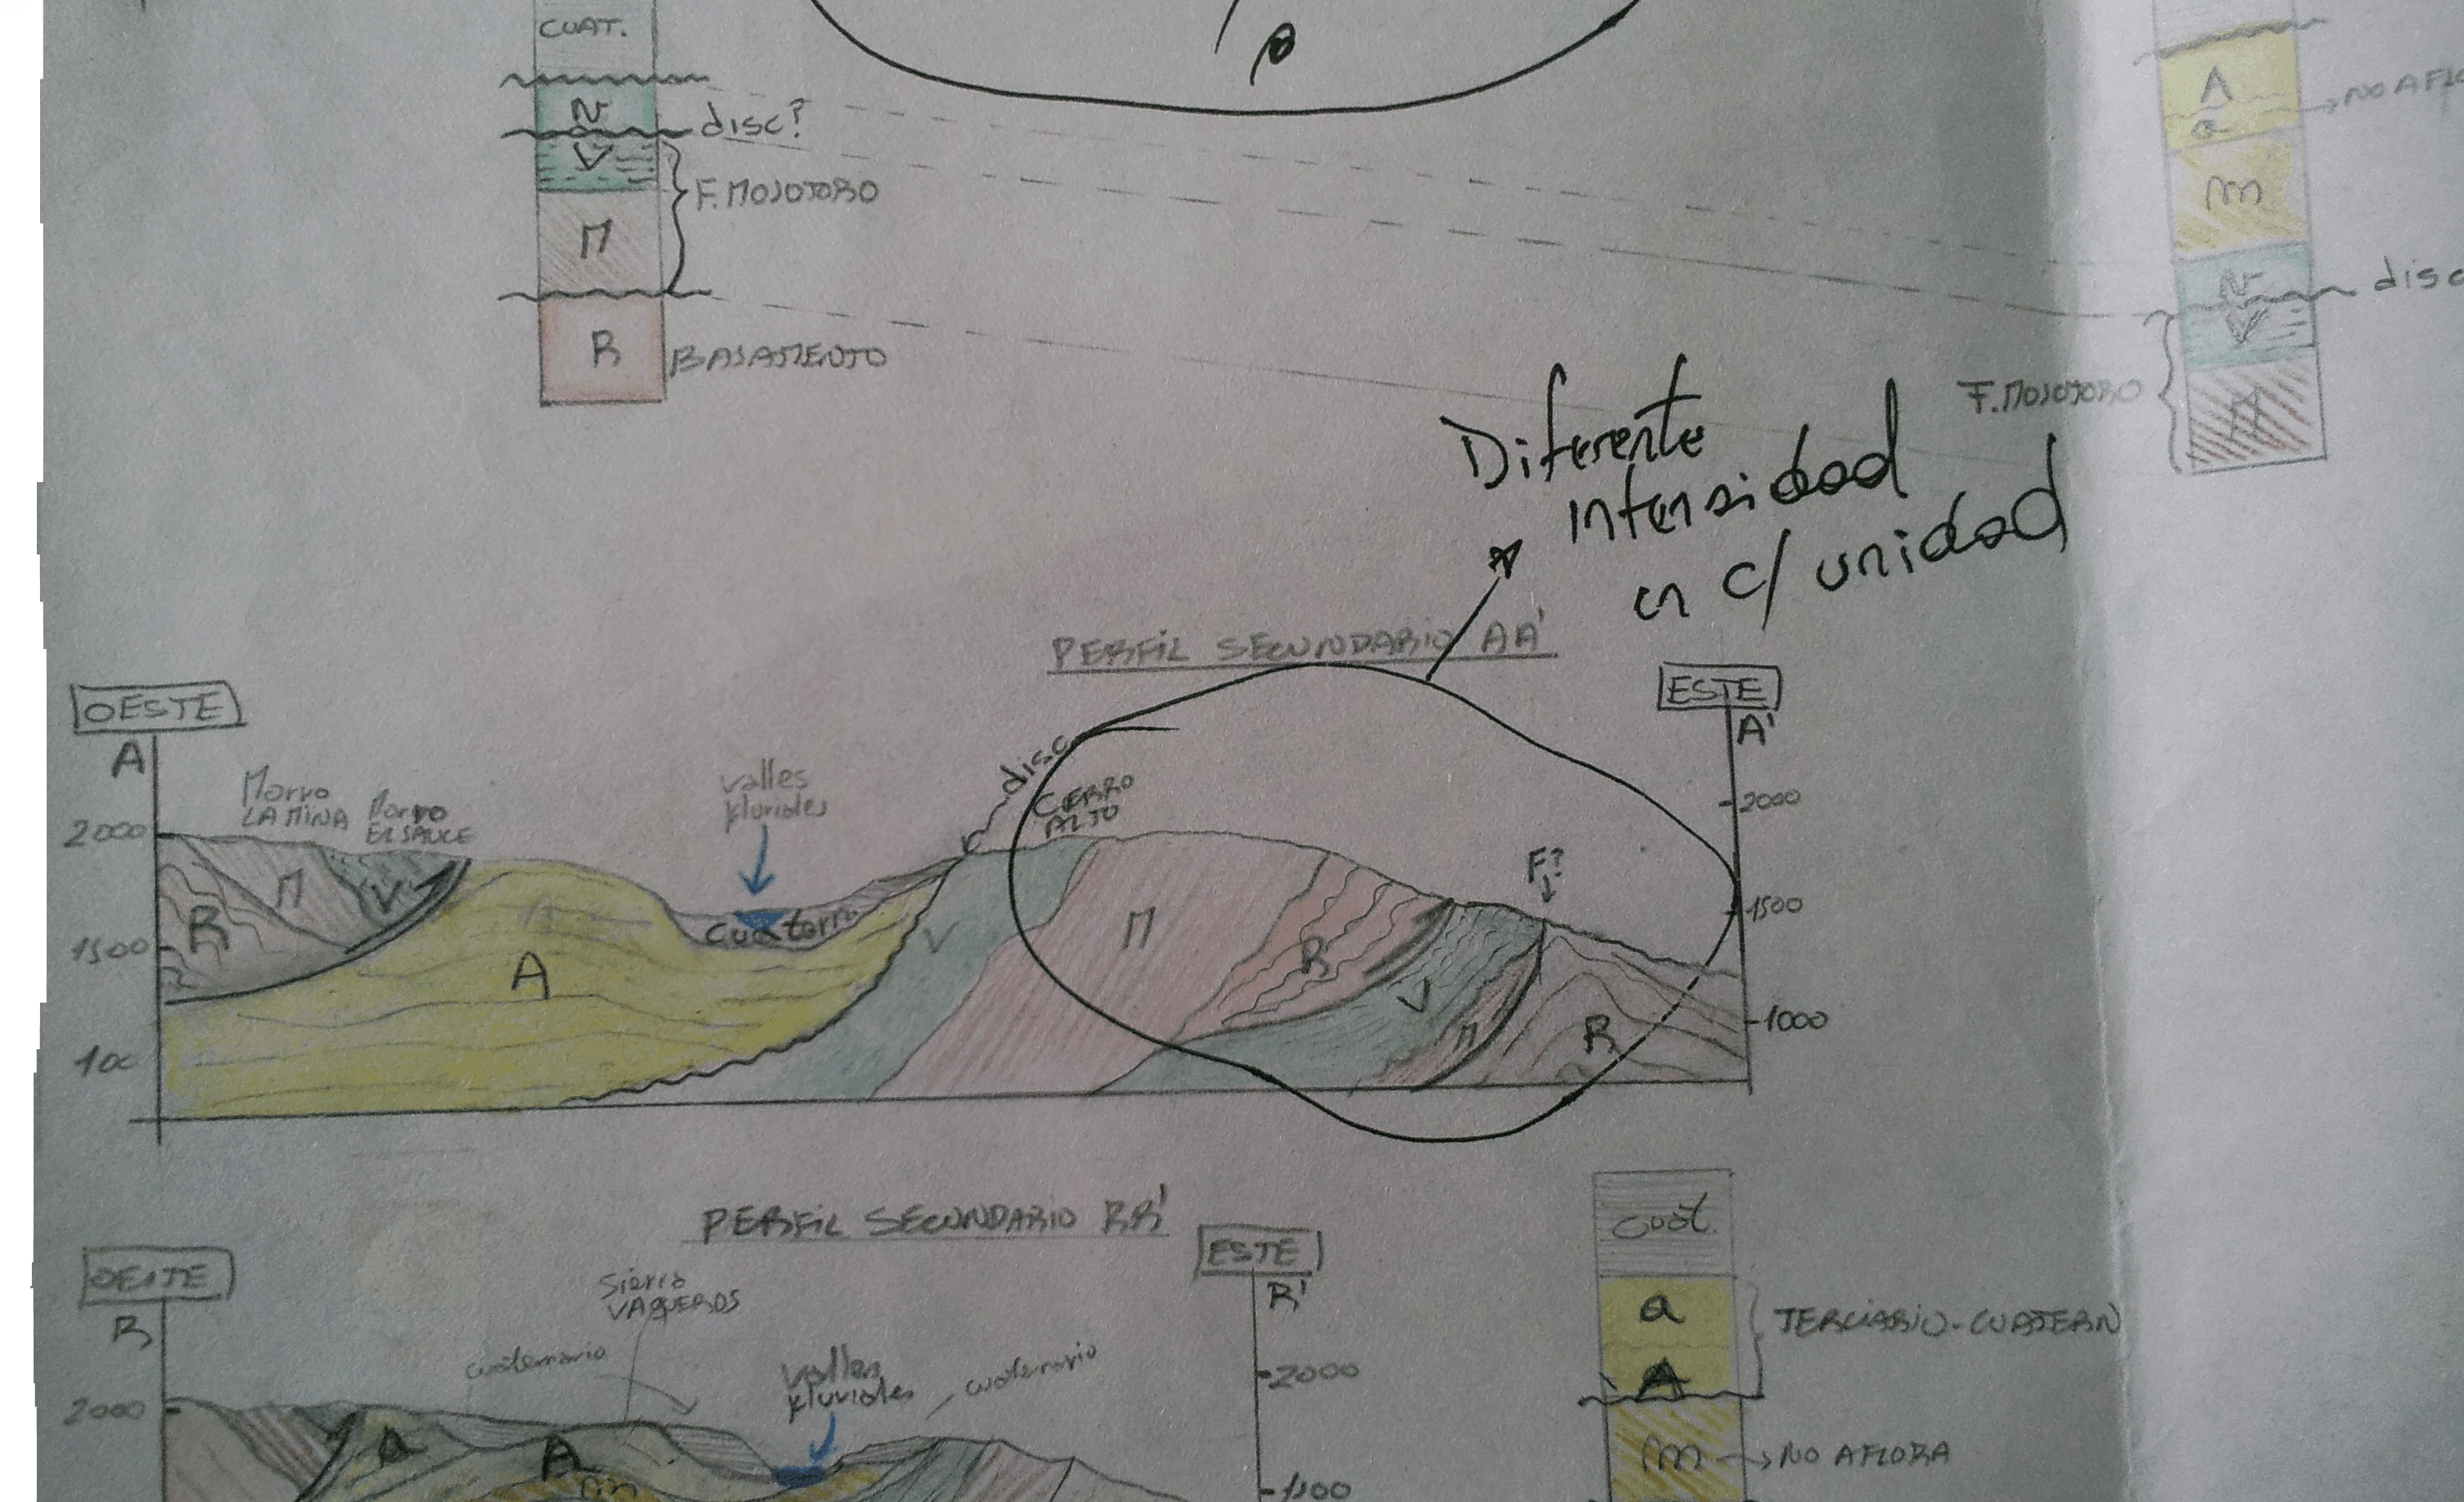 CUAT.
N
disc?
V
F. MOJOTORO
M
R
BASAMENTO
A
a
m
N
disc
V
F. MOJOTORO
M
Diferente
intensidad
en c/ unidad
PERFIL SECUNDARIO AA'
OESTE
A
ESTE
A'
Morro
LA MINA
Morro
EL SAUCE
valles
fluviales
disc
CERRO
ALTO
F?
2000
1500
100
2000
1500
1000
R
M
V
A
cuatern.
V
M
R
V
M
R
PERFIL SECUNDARIO BB'
OESTE
B
ESTE
B'
Sierra
VAQUEROS
cuaternario
valles
fluviales
cuaternario
2000
2000
1500
a
A
m
cuat.
a
A
TERCIARIO-CUATERN
m
NO AFLORA